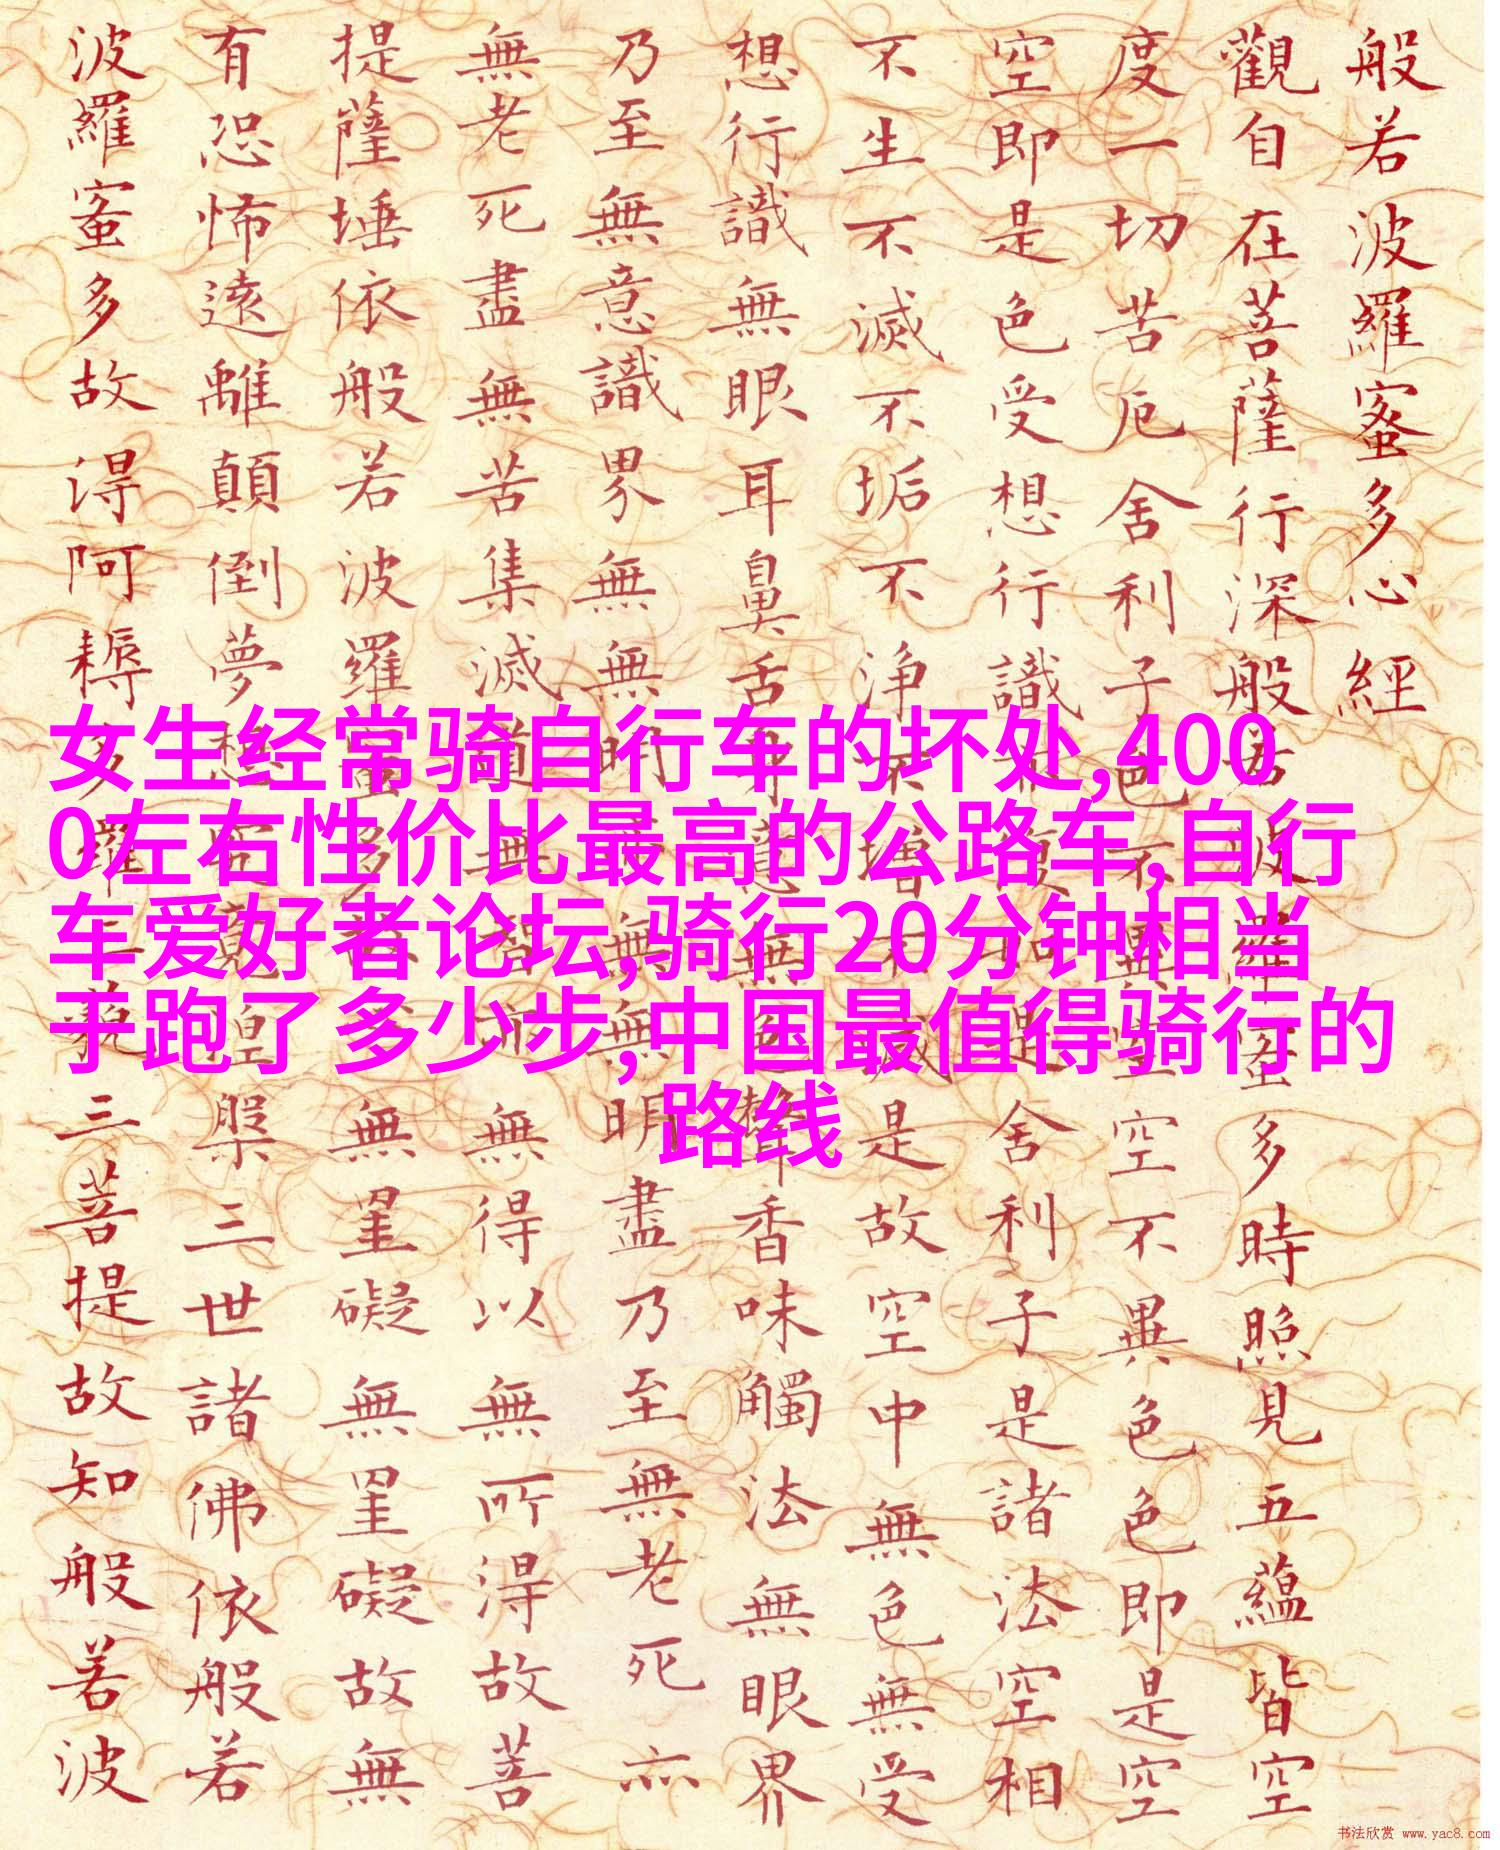 般若波羅蜜多心經
觀自在菩薩行深般若波羅蜜多時照見五蘊皆空
度一切苦厄舍利子色不異空空不異色色即是空
空即是色受想行識亦復如是舍利子是諸法空相
不生不滅不垢不净不增不減是故空中無色無受
想行識無眼耳鼻舌身意無色聲香味觸法無眼界
乃至無意識界無無明亦無無明盡乃至無老死亦
無老死盡無苦集滅道無智亦無得以無所得故菩
提薩埵依般若波羅蜜多故心無罣礙無罣礙故無
有恐怖遠離顛倒夢想究竟涅槃三世諸佛依般若
波羅蜜多故得阿耨多羅三藐三菩提故知般若波
女生经常骑自行车的坏处,400
0左右性价比最高的公路车,自行
车爱好者论坛,骑行20分钟相当
于跑了多少步,中国最值得骑行的
路线
书法欣赏 www.yac8.com